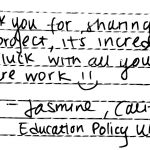 k you for sharing
project, its incred
luck with all you
re work !!
- Jasmine, Cali
Education Policy U